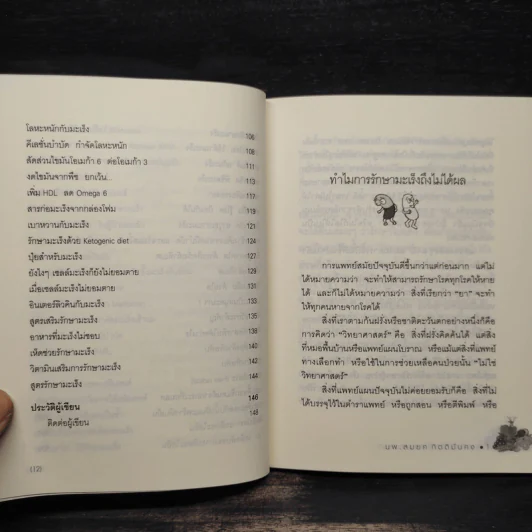 โลหะหนักกับมะเร็ง 106
คีเลชั่นบำบัด กำจัดโลหะหนัก 108
สัดส่วนไขมันโอเมก้า 6 ต่อโอเมก้า 3 111
งดไขมันจากพืช ยกเว้น... 113
เพิ่ม HDL ลด Omega 6 117
สารก่อมะเร็งจากกล่องโฟม 119
เบาหวานกับมะเร็ง 121
รักษามะเร็งด้วย Ketogenic diet 124
ปุ๋ยสำหรับมะเร็ง 127
ยังไงๆ เซลล์มะเร็งก็ยังไม่ยอมตาย 129
เมื่อเซลล์มะเร็งไม่ยอมตาย 131
อินเตอร์ลิวคินกับมะเร็ง 133
สูตรเสริมรักษามะเร็ง 135
อาหารที่มะเร็งไม่ชอบ 138
เห็ดช่วยรักษามะเร็ง 140
วิตามินเสริมการรักษามะเร็ง 142
สูตรรักษามะเร็ง 144
ประวัติผู้เขียน 146
ติดต่อผู้เขียน 148
(12)
ทำไมการรักษามะเร็งถึงไม่ได้ผล
การแพทย์สมัยปัจจุบันดีขึ้นกว่าแต่ก่อนมาก แต่ไม่
ได้หมายความว่า จะทำให้สามารถรักษาโรคทุกโรคให้หาย
ได้ และก็ไม่ได้หมายความว่า สิ่งที่เรียกว่า "ยา" จะทำ
ให้ทุกคนหายจากโรคได้
สิ่งที่เราตามก้นฝรั่งหรือชาติตะวันตกอย่างหนึ่งก็คือ
การคิดว่า "วิทยาศาสตร์" คือ สิ่งที่ฝรั่งคิดค้นได้ แต่สิ่ง
ที่หมอพื้นบ้านหรือแพทย์แผนโบราณ หรือแม้แต่สิ่งที่แพทย์
ทางเลือกทำ หรือใช้ในการช่วยเหลือคนป่วยนั้น "ไม่ใช่
วิทยาศาสตร์"
สิ่งที่แพทย์แผนปัจจุบันไม่ค่อยยอมรับก็คือ สิ่งที่ไม่
ได้บรรจุไว้ในตำราแพทย์ หรือถูกสอน หรือตีพิมพ์ หรือ
นพ.สมยศ กิตติมั่นคง • 1